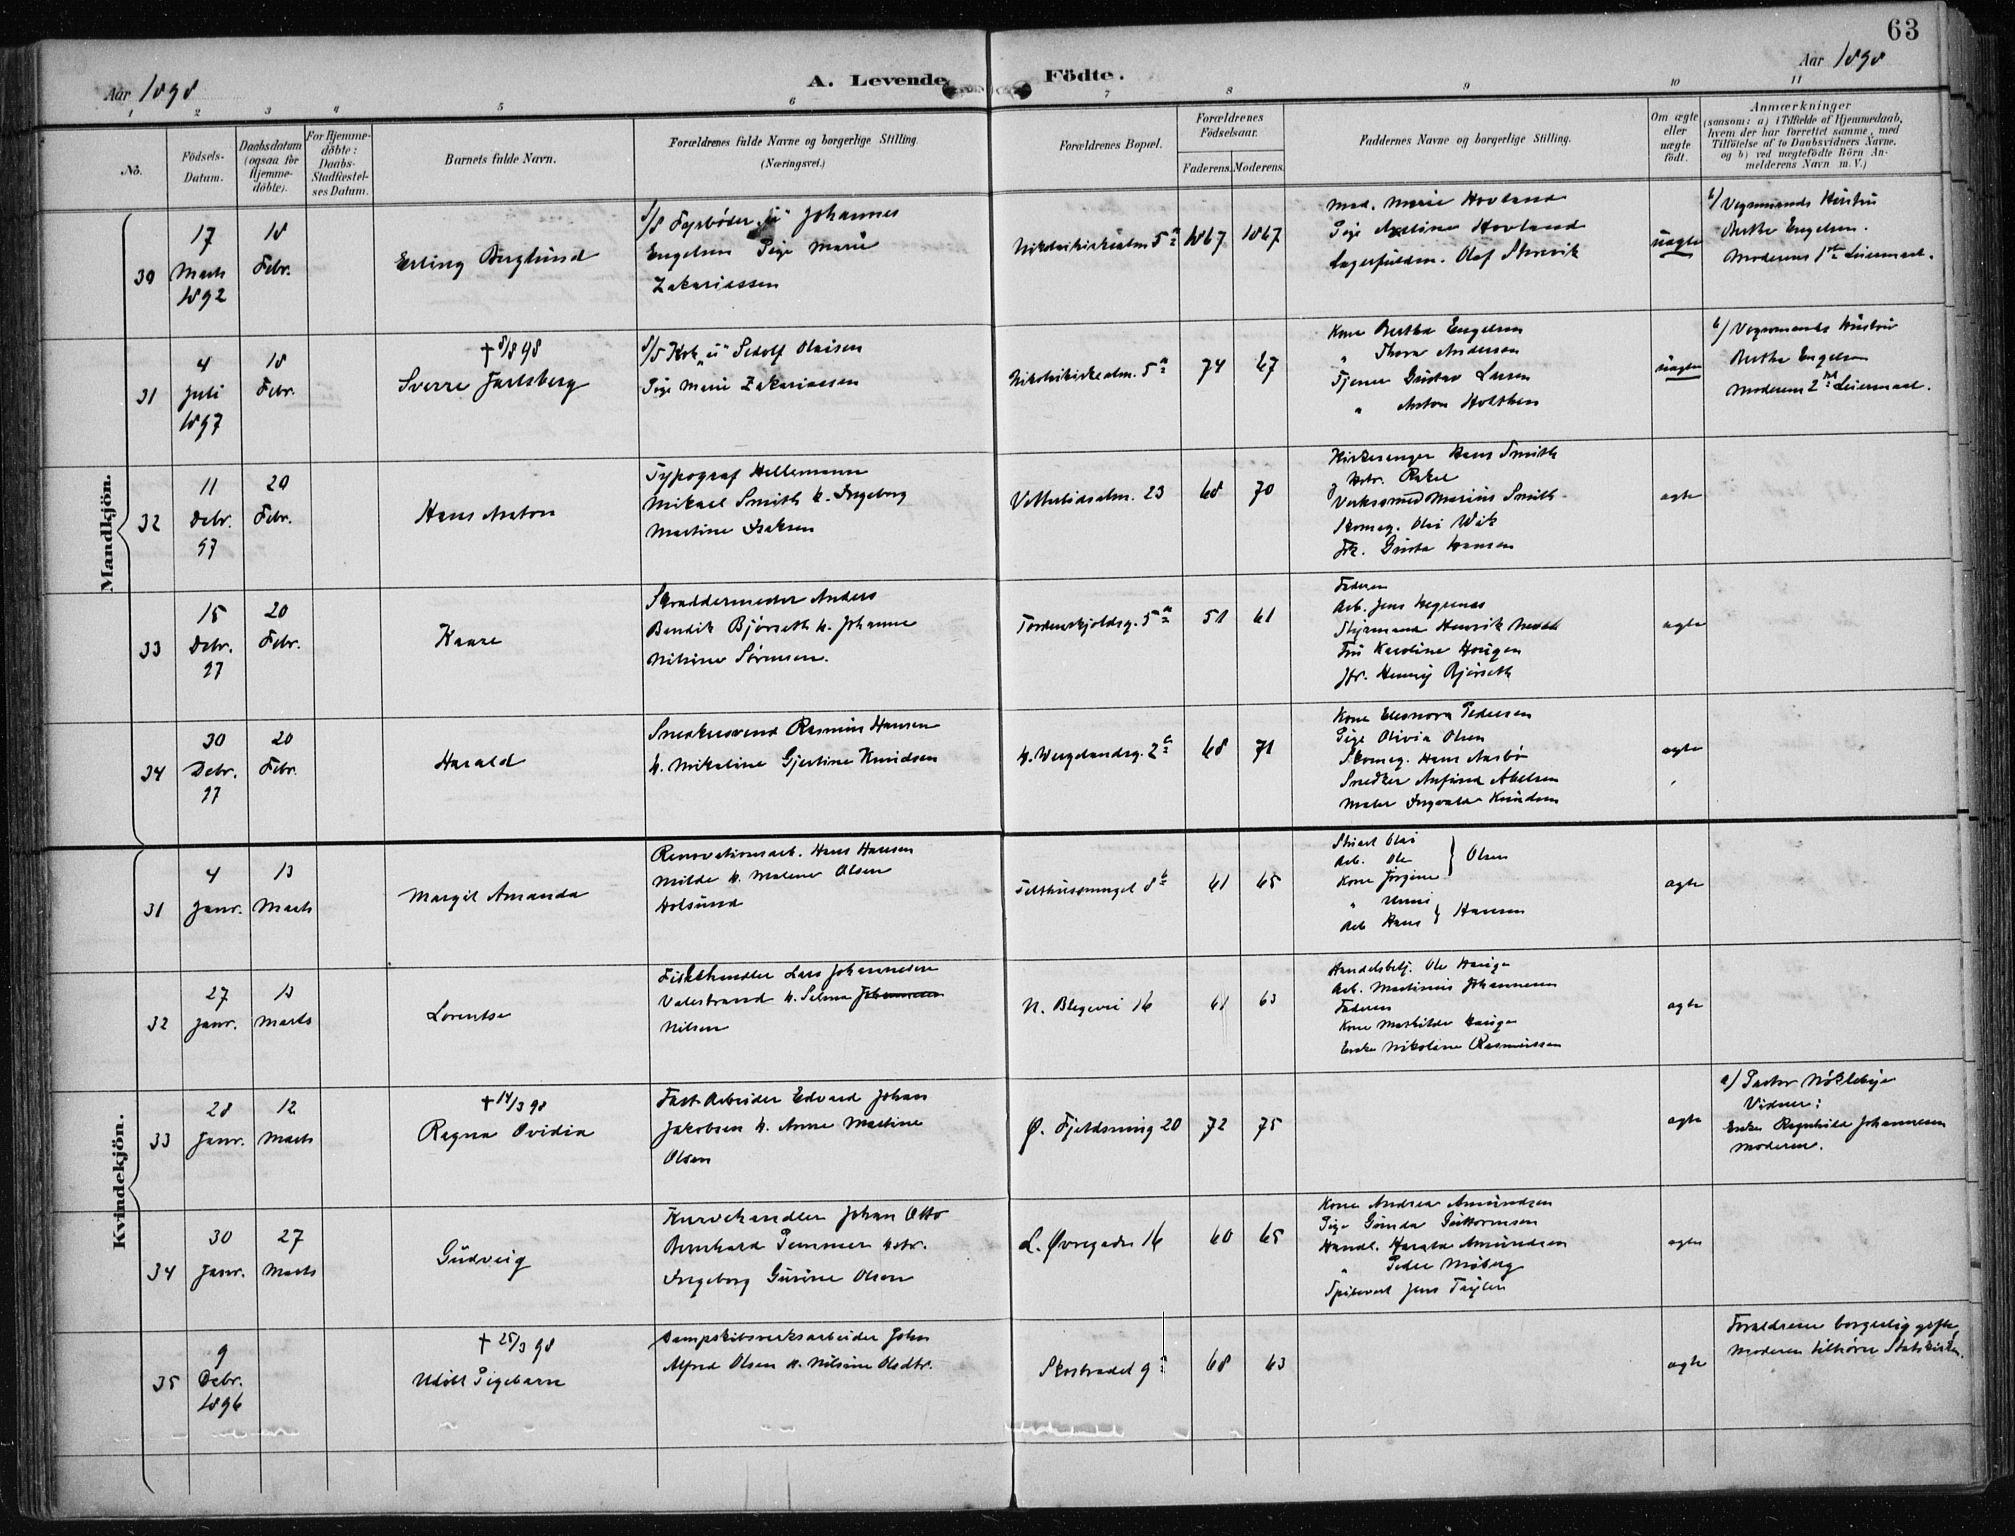 63
Aar 1898
A. Levende Födte.
Aar 1898
1 2 3 4 5 6 7 8 9 10 11
No.
Födsels-Datum.
Daabsdatum (ogsaa for Hjemme-döbte).
For Hjemme-döbte: Daabs-Stadfæstel-ses Datum.
Barnets fulde Navn.
Forældrenes fulde Navne og borgerlige Stilling.
(Næringsvei.)
Forældrenes Bopæl.
Forældrenes Födselsaar.
Faderens. Moderens.
Faddernes Navne og borgerlige Stilling.
Om ægte eller uægte födt.
Anmærkninger
(saasom: a) i Tilfælde af Hjemmedaab, hvem der har forrettet samme, med Tilföielse af to Daabsvidners Navne, og b) ved uægtefödte Börn An-melderens Navn m. V.)
Mandkjön.
30
17 Marts 1892
18 Febr.
Erling Berglund
S/S Fyrbøder "u" Johannes
Engelsen Pige Marie
Zakariassen
Nikolaikirkealm. 5 a
1867 1867
Mad. Marie Hovland
Pige Hovland
Olaf
uægte
b/ Vognmands Hustru
Berthe Engelsen.
Moderens 1ste Leiermaal.
31
4 Juli 1897
18 Febr.
† 8/8 98
Sverre Jarlsberg
S/S Kok "u" Sedolf Olaisen
Pige Marie Zakariassen
Nikolaikirkealm. 5 a
74 67
Kone Bertha Engelsen
" Thora Andersen
Tjener Gustav Larsen
" Anton
uægte
b/ Vognmands Hustru
Berthe Engelsen
Moderens 2det Leiermaal.
32
11 Debr. 97
20 Febr.
Hans Anton
Typograf Hellemann
Mikael Smith h. Ingeborg
Martine Isaksen
Vetterlidsalm. 23
68 70
Kirkesanger Hans Smith
Rakel
Marius Smith
Skomag. Olai Wik
Frk. Gusta Hansen
ægte
33
15 Debr. 97
20 Febr.
Kaare
Skræddermester Anders
Bendik Bjørseth h. Johanne
Nilsine Sørensen.
Tordenskjoldsg. 5 a
51 61
Faderen
Arb. Jens
Styrmand Henrik
Fru Karoline Haugen
Hr. Henry Bjørseth
ægte
34
30 Debr. 97
20 Febr.
Harald
Snedkersvend Rasmus Hansen
h. Mikaline Gjertine Knudsen
H. Wergelandsg. 2 a
68 71
Kone Eleonora Pedersen
Pige Olivia Olsen
Skomag. Hans Aasbø
Snedker Anfind Abelsen
Maler Ingvald Knudsen
ægte
Kvindekjön.
31
4 Janr.
13 Marts
Margit Amanda
Renovationsarb. Hans Hansen
Milde h. Malene Olsen
Holsund
Telthussmuget 8 b
61 65
Stuert Olai
Arb. Ole
Kone Jørgine
} Olsen
"
Arb. Hans
} Hansen
ægte
32
27 Janr.
13 Marts
Lorentse
Fiskehandler Lars Johannesen
Valestrand h. Selma Johannesen
Nilsen
N. Blegevei 16
61 63
Handelsbetj. Ole Hauge
Arb. Martinus Johannesen
Faderen
Kone Mathilde Hauge
Enke Nikoline Rasmussen
ægte
33
28 Janr.
12 Marts
† 14/3 98
Ragna Ovidia
Fast Arbeider Edvard Johan
Jakobsen h. Anne Martine
Olsen
Ø. Fjeldsmug 20
72 75
ægte
a/ Pastor Nøkleby
Vidner:
Enke Ragnhild Johannesen
Moderen.
34
30 Janr.
27 Marts
Gudveig
Kurvehandler Johan Otto
Bernhard Pemmer
Ingeborg Gurine Olsen
L. Øvregaden 16
60 65
Kone Andrea Amundsen
Pige Gunda Guttormsen
Handl. Harald Amundsen
" Peder Moberg
Jens
ægte
35
9 Debr. 1896
† 25/3 98
Udøbt Pigebarn
Dampskibsverksarbeider John
Alfred Olsen h. Nilsine Olsdtr.
Skostrædet 9 a
68 63
ægte
Forældrene borgerlig gifte,
Moderen tilhører Statskirken.